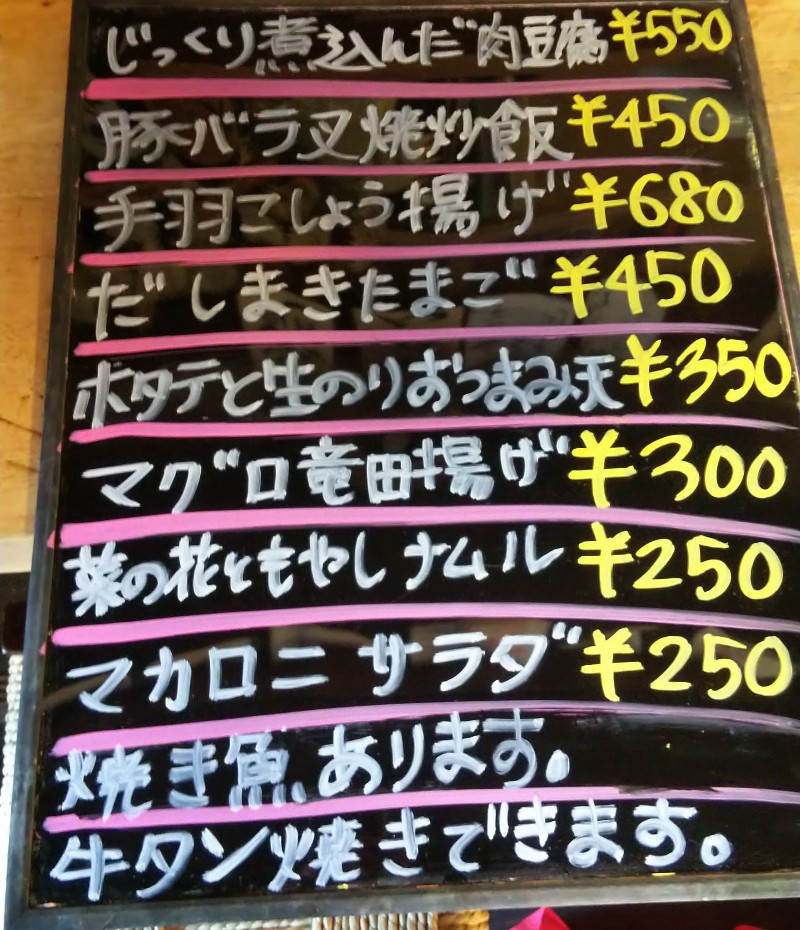 じっくり煮込んだ肉豆腐¥550
豚バラ叉焼炒飯¥450
手羽こしょう揚げ¥680
だしまきたまご¥450
ホタテと生のりおつまみ天¥350
マグロ竜田揚げ¥300
菜の花ともやしナムル¥250
マカロニサラダ¥250
焼き魚、あります。
牛タン焼きできます。